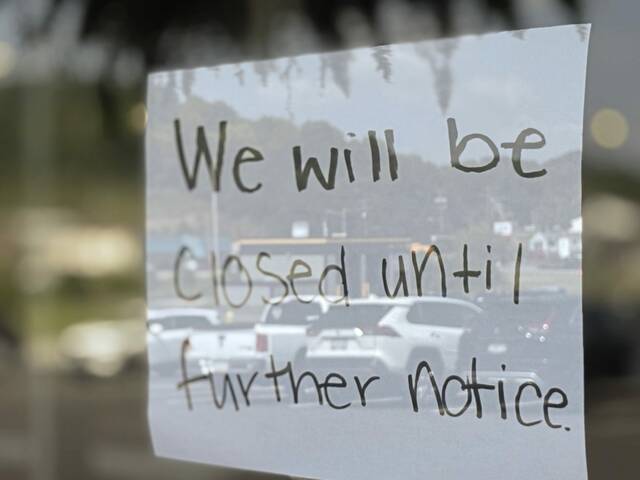 We will be
closed until
further notice.